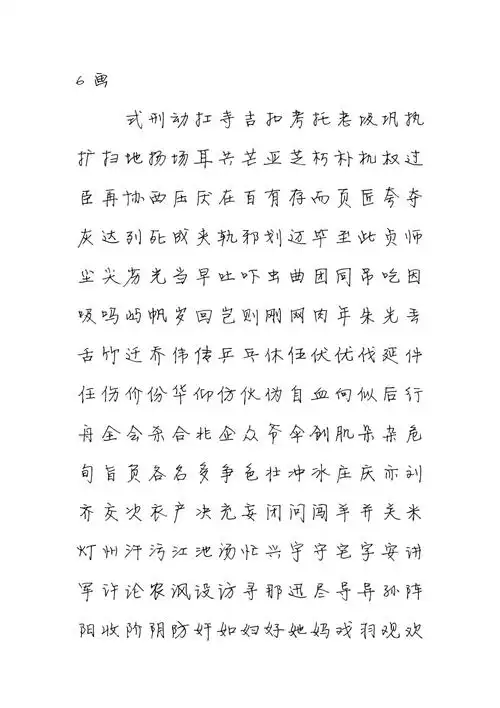 6 画
式刑动扛寺吉扣考托老圾巩执
扩扫地扬场耳共芒亚芝朽朴机权过
臣再协西压厌在百有存而页匠夸夺
灰达列死成夹轨邪划迈毕至此贞师
尘尖劣光当早吐吓虫曲团同吊吃因
吸吗屿帆岁回岂则刚网肉年朱先丢
舌竹迁乔伟传乒乓休伍伏优伐延件
任伤价份华仰仿伙伪自血向似后行
舟全会杀合兆企众爷伞创肌朵杂危
旬旨负各名多争色壮冲冰庄庆亦刘
齐交次衣产决充妄闭问闯羊并关米
灯州汗污江池汤忙兴宇守宅字安讲
军许论农讽设访寻那迅尽导异孙阵
阳收阶阴防奸如妇好她妈戏羽观欢